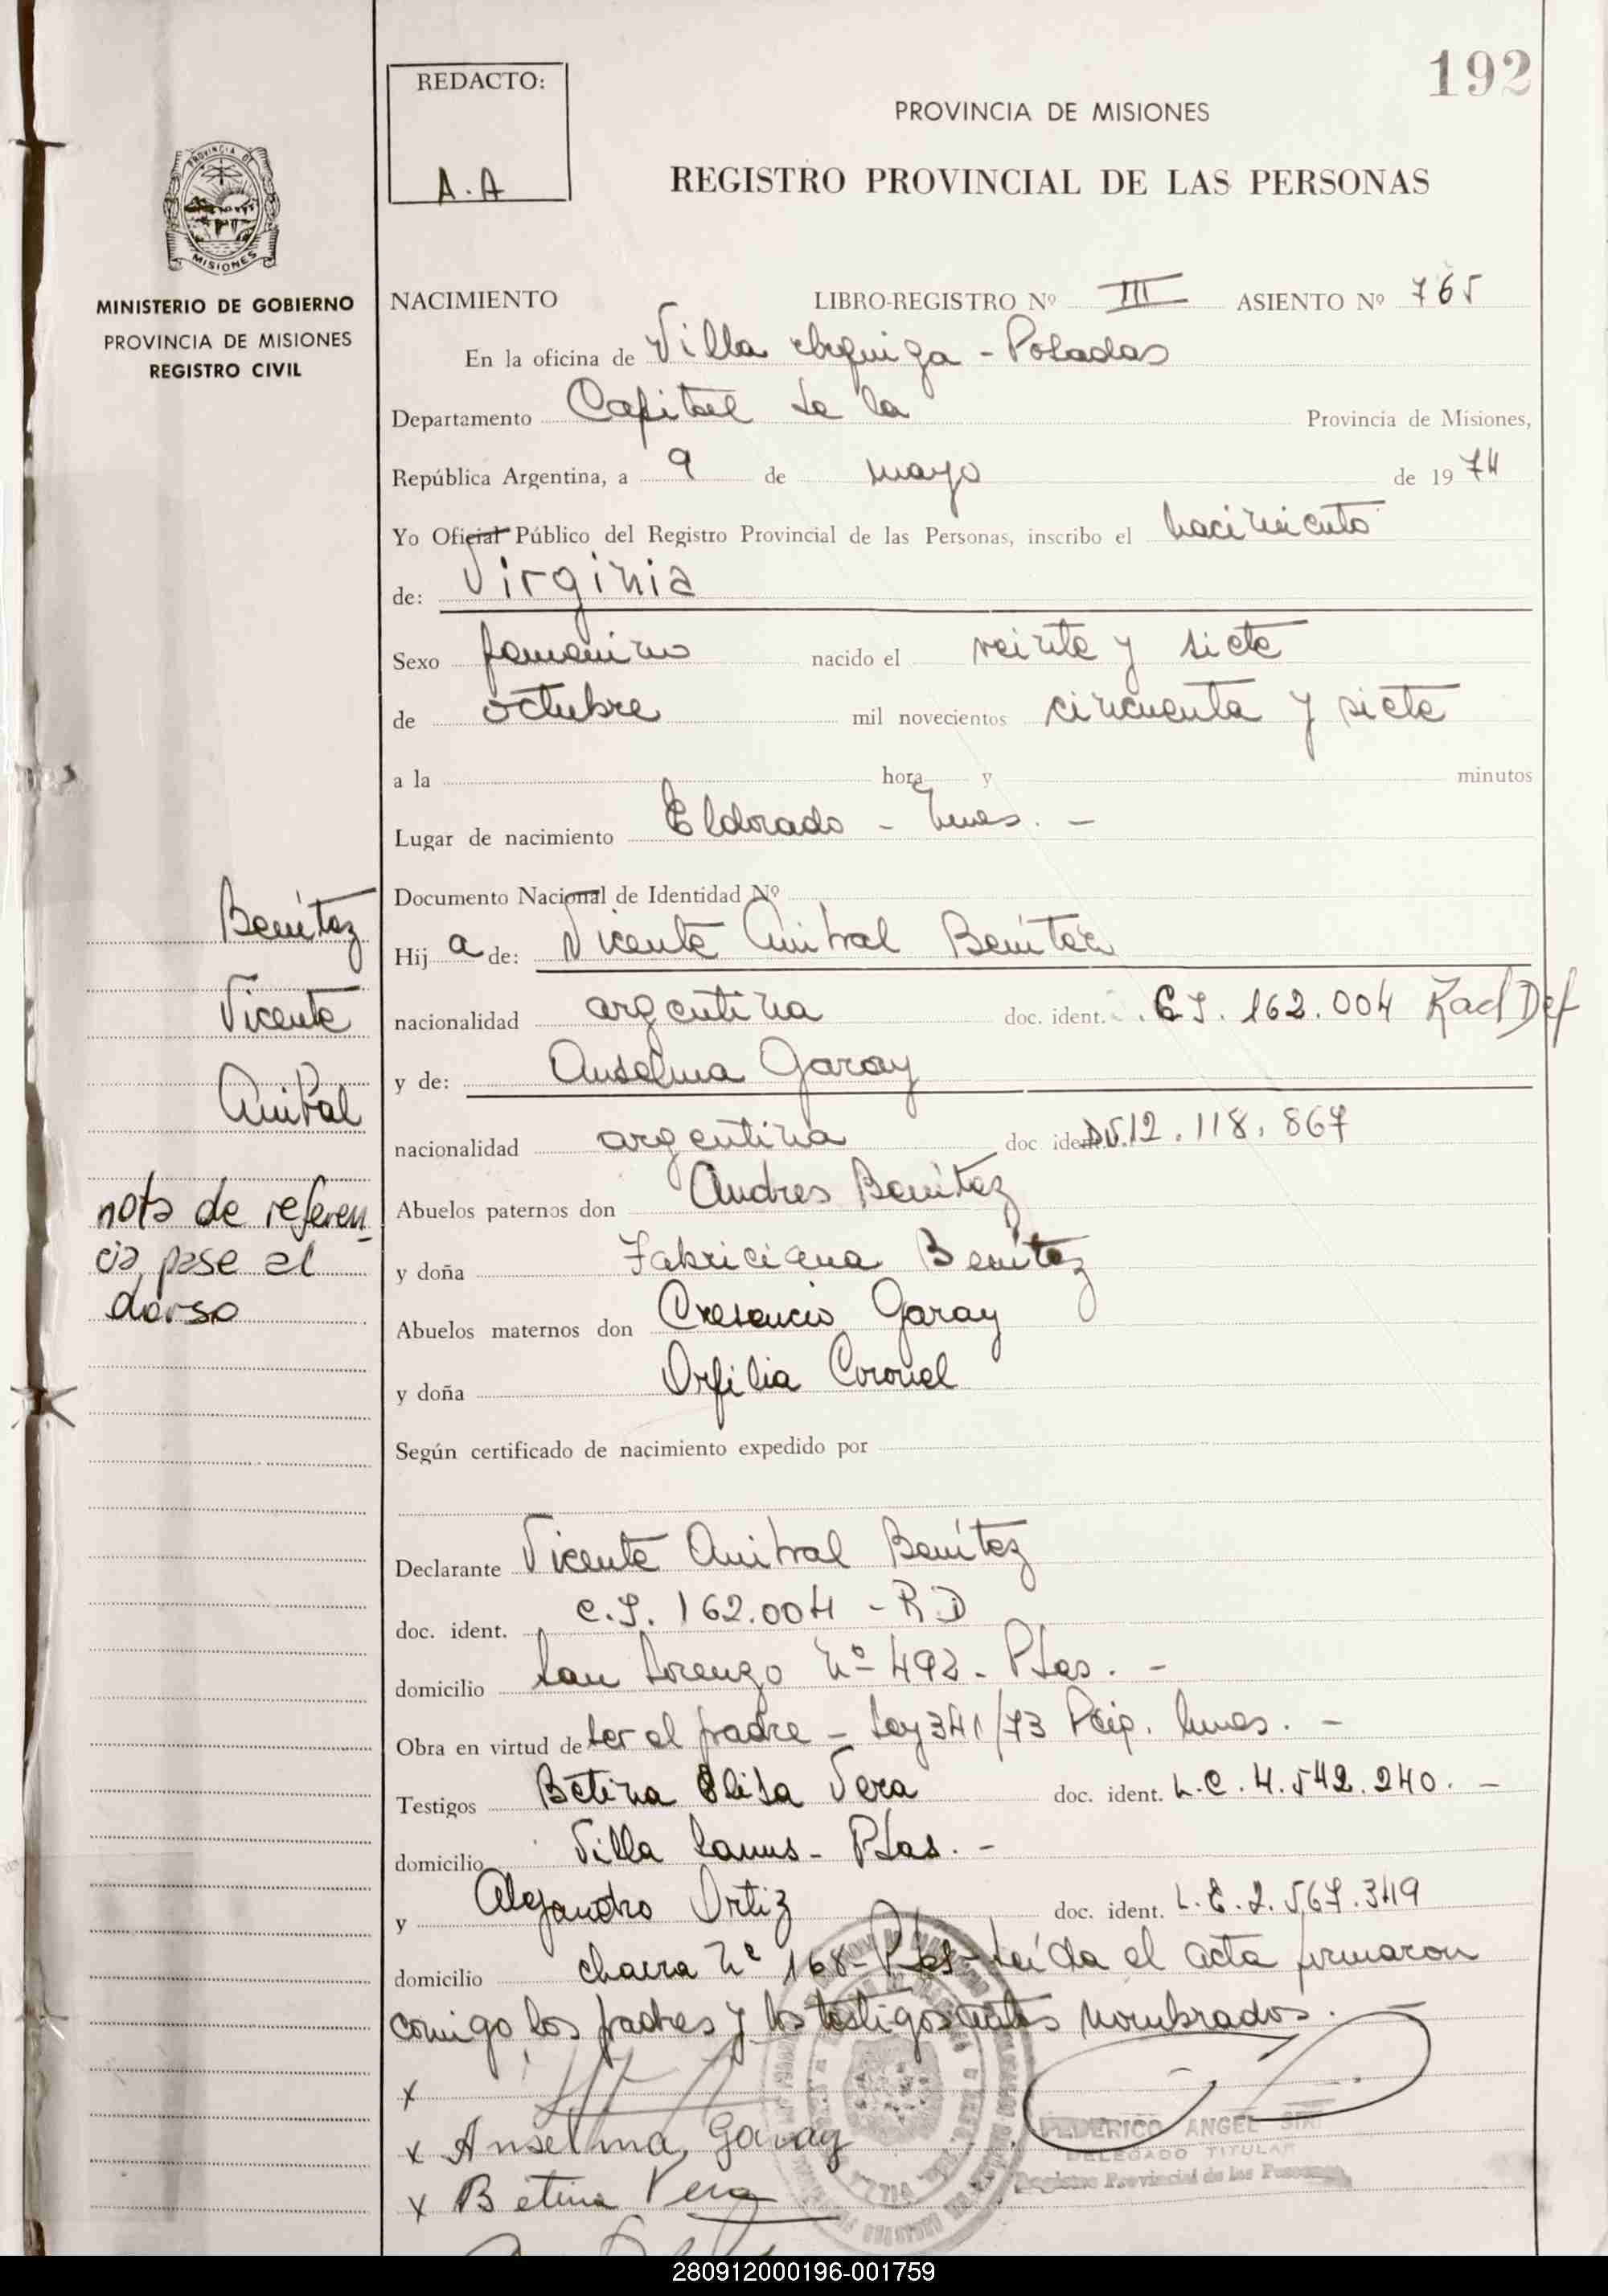 192
REDACTO:
A.A
PROVINCIA DE MISIONES
REGISTRO PROVINCIAL DE LAS PERSONAS
PROVINCIA DE
MISIONES
MINISTERIO DE GOBIERNO
PROVINCIA DE MISIONES
REGISTRO CIVIL
NACIMIENTO LIBRO-REGISTRO Nº III ASIENTO Nº 765
En la oficina de Villa Urquiza - Posadas
Departamento Capital de la Provincia de Misiones,
República Argentina, a 9 de mayo de 1974
Yo Oficial Público del Registro Provincial de las Personas, inscribo el nacimiento
de: Virginia
Sexo femenino nacido el veinte y siete
de octubre mil novecientos cincuenta y siete
a la hora y minutos
Lugar de nacimiento Eldorado - Mnes. -
Documento Nacional de Identidad Nº
Hij a de: Vicente Anibal Benítez
nacionalidad argentina doc. ident. C.I. 162.004 Rad Def
y de: Anselma Garay
nacionalidad argentina doc ident. 12.118.867
Abuelos paternos don Andres Benítez
y doña Fabriciana Benítez
Abuelos maternos don Cresencio Garay
y doña Orfilia Coronel
Según certificado de nacimiento expedido por
Benítez
Vicente
Anibal
nota de referen
cia, pase al
dorso
Declarante Vicente Anibal Benítez
doc. ident. C.I. 162.004 - R.D
domicilio San Lorenzo Nº 492 - Pdas. -
Obra en virtud de ser el padre - Ley 341/73 Pcip. Mnes. -
Testigos Betina Elisa Vera doc. ident. L.C. 4.542.240. -
domicilio Villa Lanus - Pdas. -
y Alejandro Ortiz doc. ident. L.E. 2.567.349
domicilio chacra Nº 168 - Pdas - Leída el acta firmaron
comigo los padres y los testigos nombrados. -
x
x Anselma Garay
x Betina Vera
FEDERICO ANGEL
DELEGADO TITULAR
Registro Provincial de las Personas
280912000196-001759